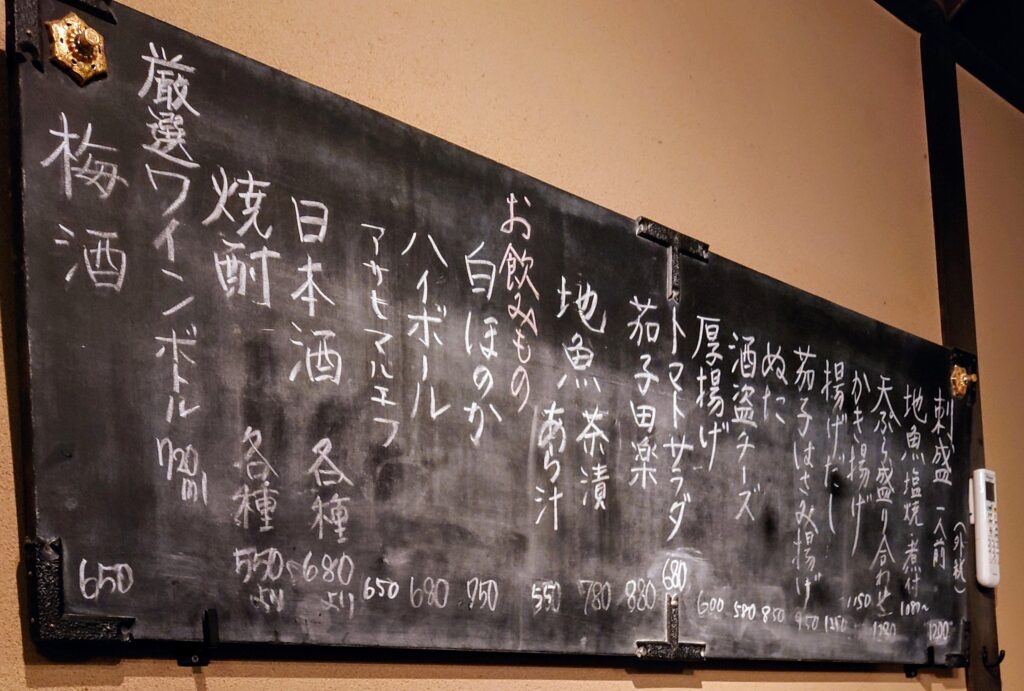 (外税)
刺盛 一人前 1200
地魚 塩焼 煮付 1080~
天ぷら盛り合わせ 1280
かき揚げ 1150
揚げだし
茄子はさみ揚げ 950
ぬた 850
酒盗チーズ 580
厚揚げ 600
トマトサラダ 680
茄子田楽 880
地魚茶漬 780
あら汁 550
お飲みもの
白ほのか
ハイボール 680
アサヒマルエフ 650
日本酒 各種 680より
焼酎 各種 550より
厳選ワインボトル 720ml
梅酒 650